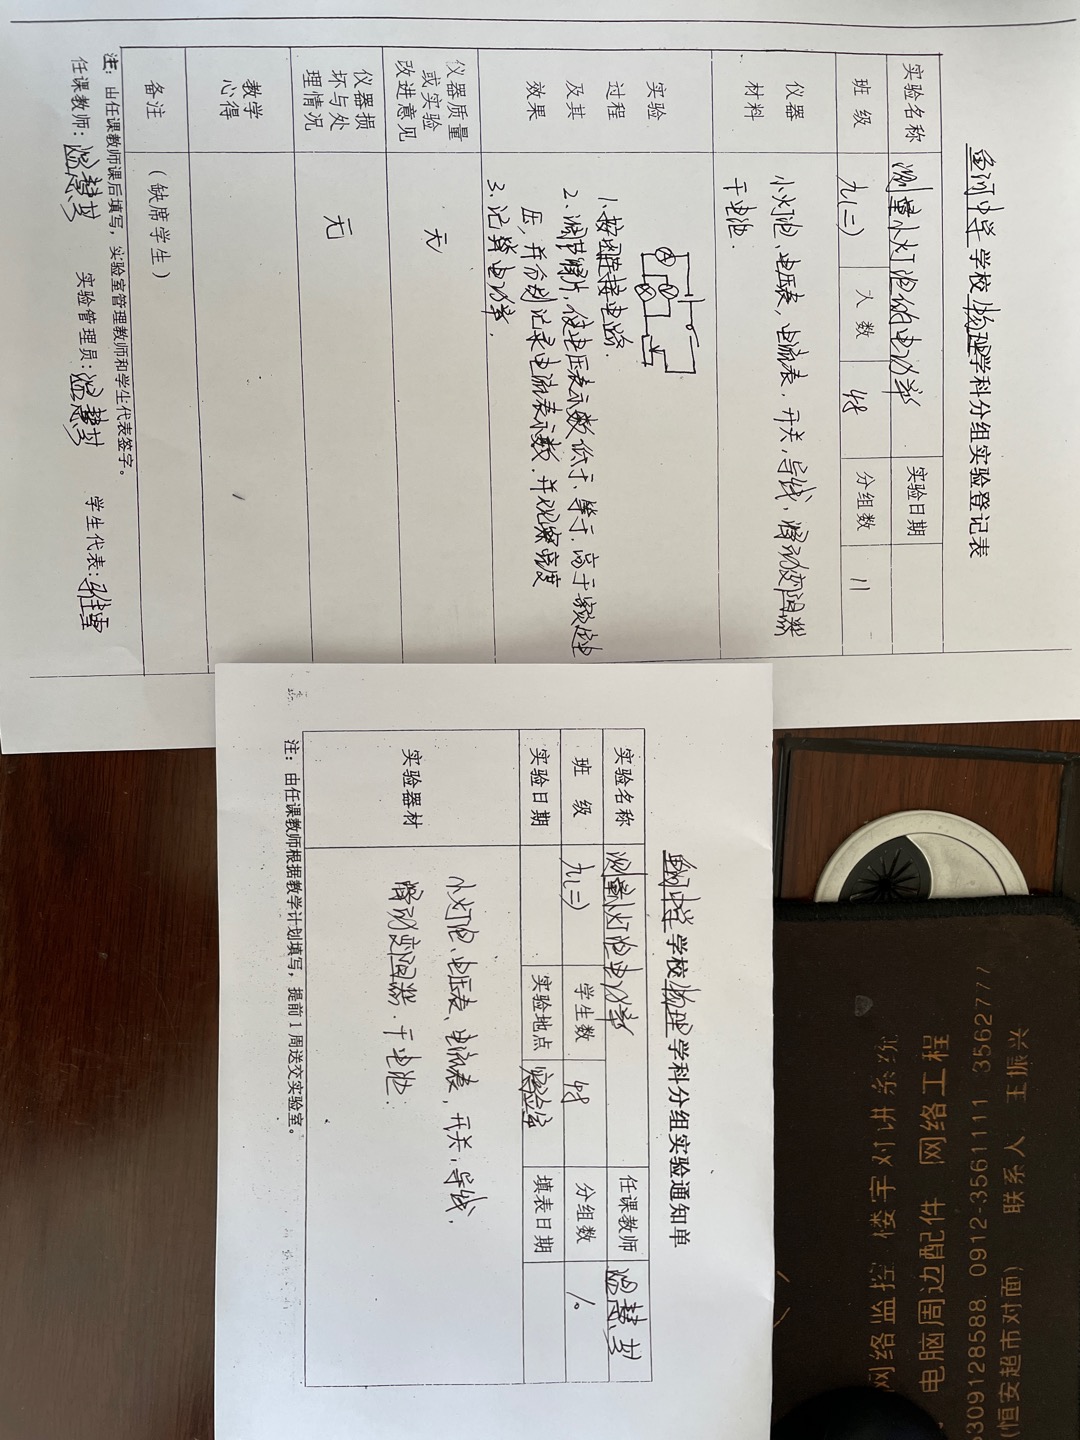 鱼河中学学校物理学科分组实验登记表
实验名称 测量小灯泡的电功率 实验日期
班 级 九(二) 人 数 48 分组数 11
仪器材料 小灯泡、电压表,电流表,开关,导线,滑动变阻器
干电池.
实验过程及其效果
1、按图连接电路.
2、调节滑片,使电压表示数低于、等于、高于额定电
压,并分别记录电流表示数.并观察亮度
3、记算电功率.
仪器质量或实验改进意见 无
仪器损坏与处理情况 无
教学心得
备注 (缺席学生)
注:由任课教师课后填写,实验室管理教师和学生代表签字。
任课教师: 实验管理员: 学生代表:
鱼河中学学校物理学科分组实验通知单
实验名称 测量小灯泡电功率 任课教师
班 级 九(二) 学生数 48 分组数
实验日期 实验地点 实验室 填表日期
实验器材 小灯泡、电压表、电流表,开关,导线,
滑动变阻器.干电池.
注:由任课教师根据教学计划填写,提前1周送交实验室。
网络监控 楼宇对讲系统
电脑周边配件 网络工程
309128588 0912-3561111 3562777
(恒安超市对面) 联系人 王振兴